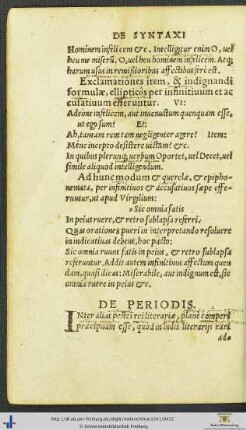 DE SYNTAXI
Hominem infelicem &c. Intelligitur enim O, uel
heu me miserũ, O, uel heu hominem infelicem. Atq;
harum usus in remissioribus affectibus ferè est.
Exclamationes item, & indignandi
formulæ, ellipticῶs per infinitiuum et ac
cusatiuum efferuntur. Vt:
Adeóne infelicem, aut inuenustum quenquam esse,
ut ego sum? Et:
Ah, tamam rem tam negligenter agere? Item:
Méne incepto desistere uictam? &c.
In quibus plerunq; uerbum Oportet, uel Decet, uel
simile aliquod intelligendum.
Ad hunc modum & querelæ, & epipho-
nemata, per infinitiuos & accusatiuos sæpe effe-
runtur, ut apud Virgilium:
Sic omnia fatis
In peius ruere, & retro sublapsa referri.
Quas orationes pueri in interpretando resoluere
in indicatiuos debent, hoc pacto:
Sic omnia ruunt fatis in peius, & retro sublapsa
referuntur. Addit autem infinitiuus affectum quen
dam, quasi dicas: Miserabile, aut indignum est, sic
omnia ruere in peius &c.
DE PERIODIS.
INter alia pestes rei literariæ, planè comperi
præcipuam esse, quòd in ludis literarijs rarò
ado
http://dl.ub.uni-freiburg.de/diglit/
© Universitätsbibliothek Freiburg